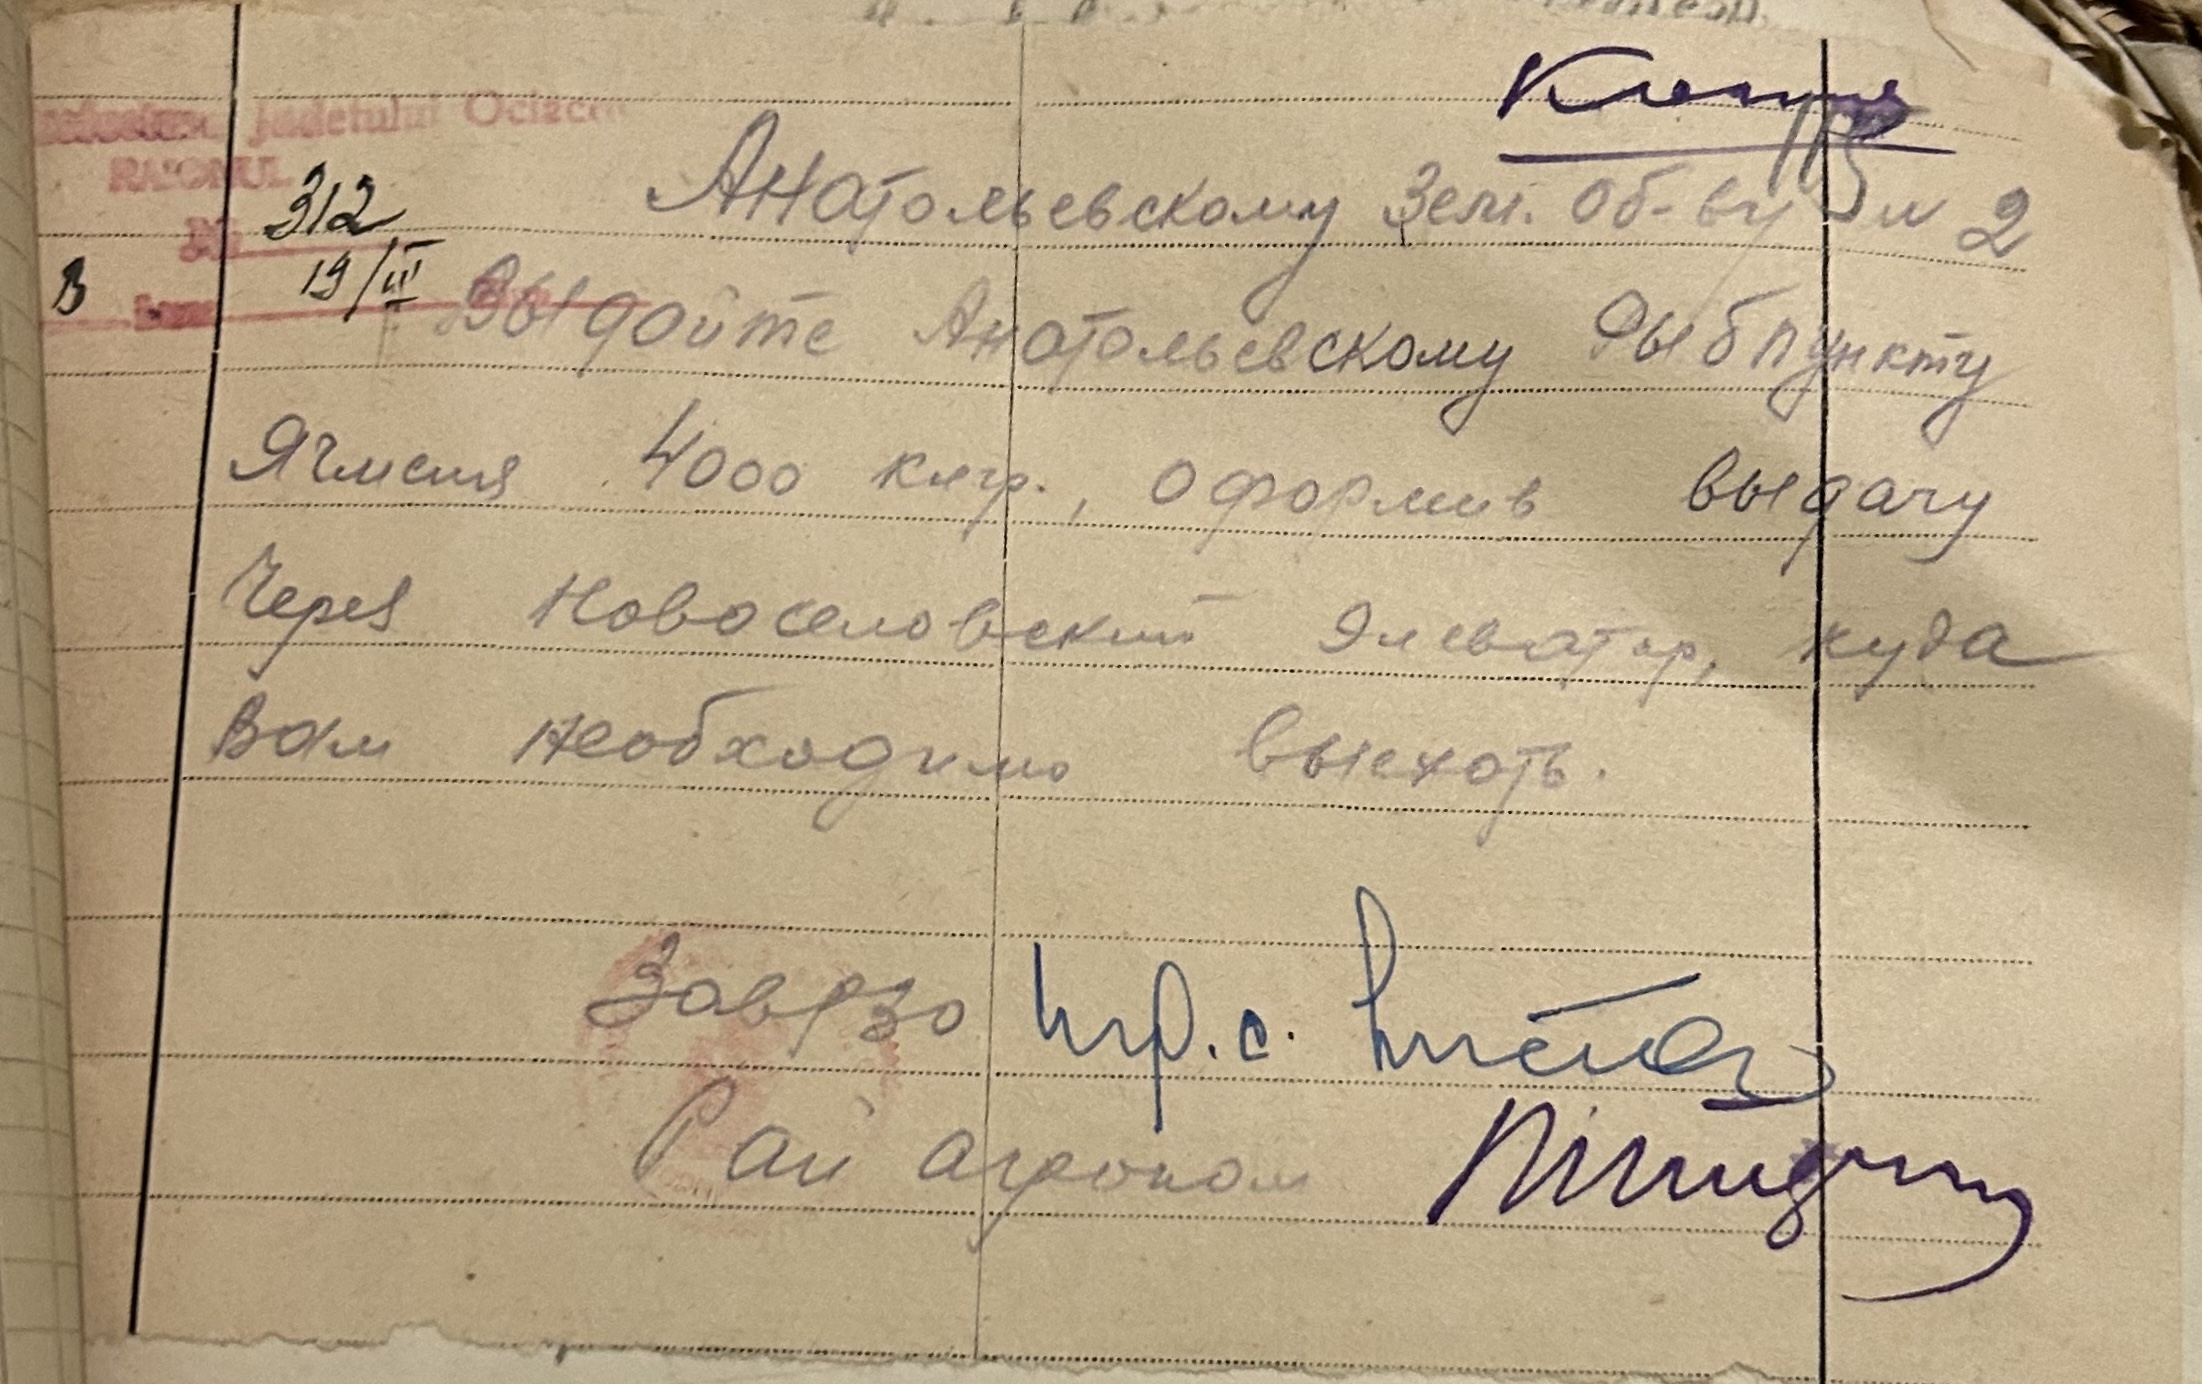 Копия
județului Oceacov
RAIONUL
No 312
Анатольевскому Зем. Об-ву 1 и 2
19/III
В
Выдайте Анатольевскому Рыбпункту
Ячменя 4000 клгр., оформив выдачу
Через Новоселовский Элеватор, куда
Вам необходимо выехать.
Заврзо
Рай агроном